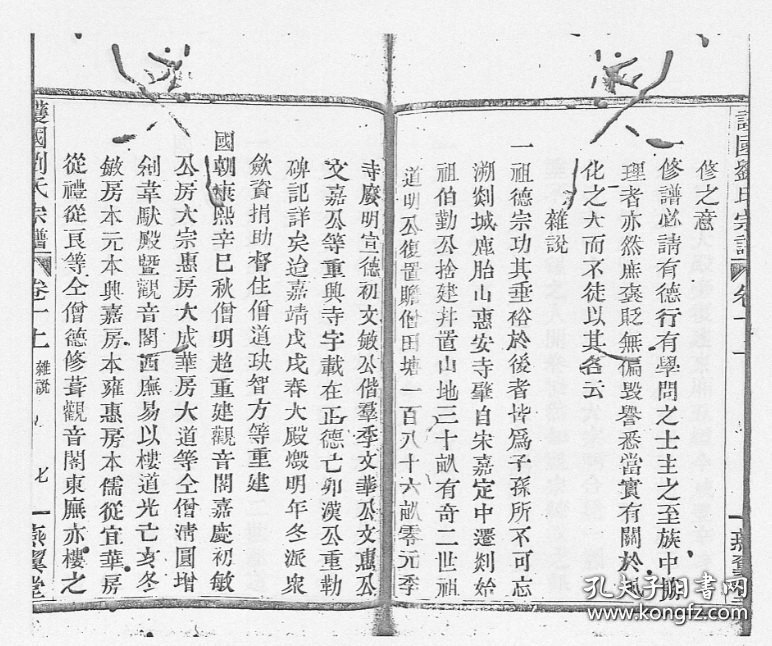 護國劉氏宗譜 卷十上
修之意
修譜必請有德行有學問之士主之至族中
理者亦然庶褒貶無偏毀譽悉當實有關於風
化之大而不徒以其名云
雜說
一祖德宗功其垂裕於後者皆爲子孫所不可忘
溯剡城鹿胎山惠安寺肇自宋嘉定中遷剡始
祖伯勤公捨建并置山地三十畝有奇二世祖
道明公復置贍僧田塘一百八十六畝零元季
寺廢明宣德初文敏公偕羣季文華公文惠公
文嘉公等重興寺宇載在正德己卯漢公重勒
碑記詳矣迨嘉靖戊戌春大殿燬明年冬派衆
歛資捐助督住僧道玦智方等重建
國朝康熙辛巳秋僧明超重建觀音閣嘉慶初敏
公房大宗惠房大成華房大道等仝僧清圓增
剏韋馱殿暨觀音閣西廡易以樓道光己亥冬
敏房本元本興嘉房本雍惠房本儒從宜華房
從禮從艮等仝僧德修葺觀音閣東廡亦樓之
護國劉氏宗譜 卷十上 雜說 七 燕翼堂
孔夫子旧书网
www.kongfz.com